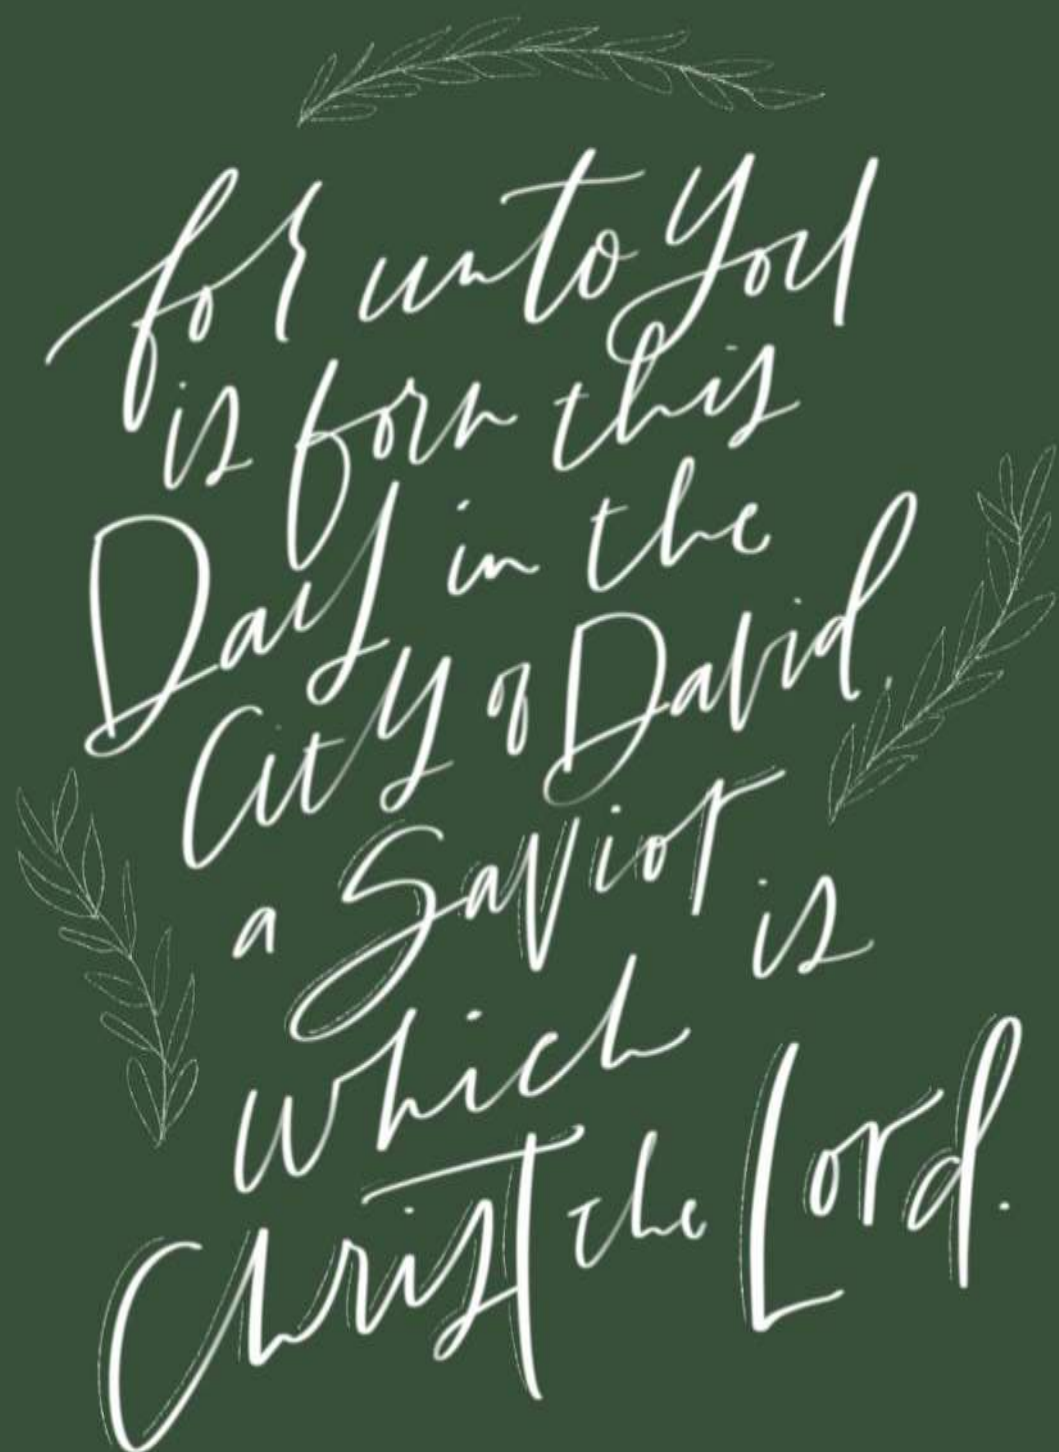 for unto you
is born this
Day in the
City of David,
a Savior is
which
Christ the Lord.